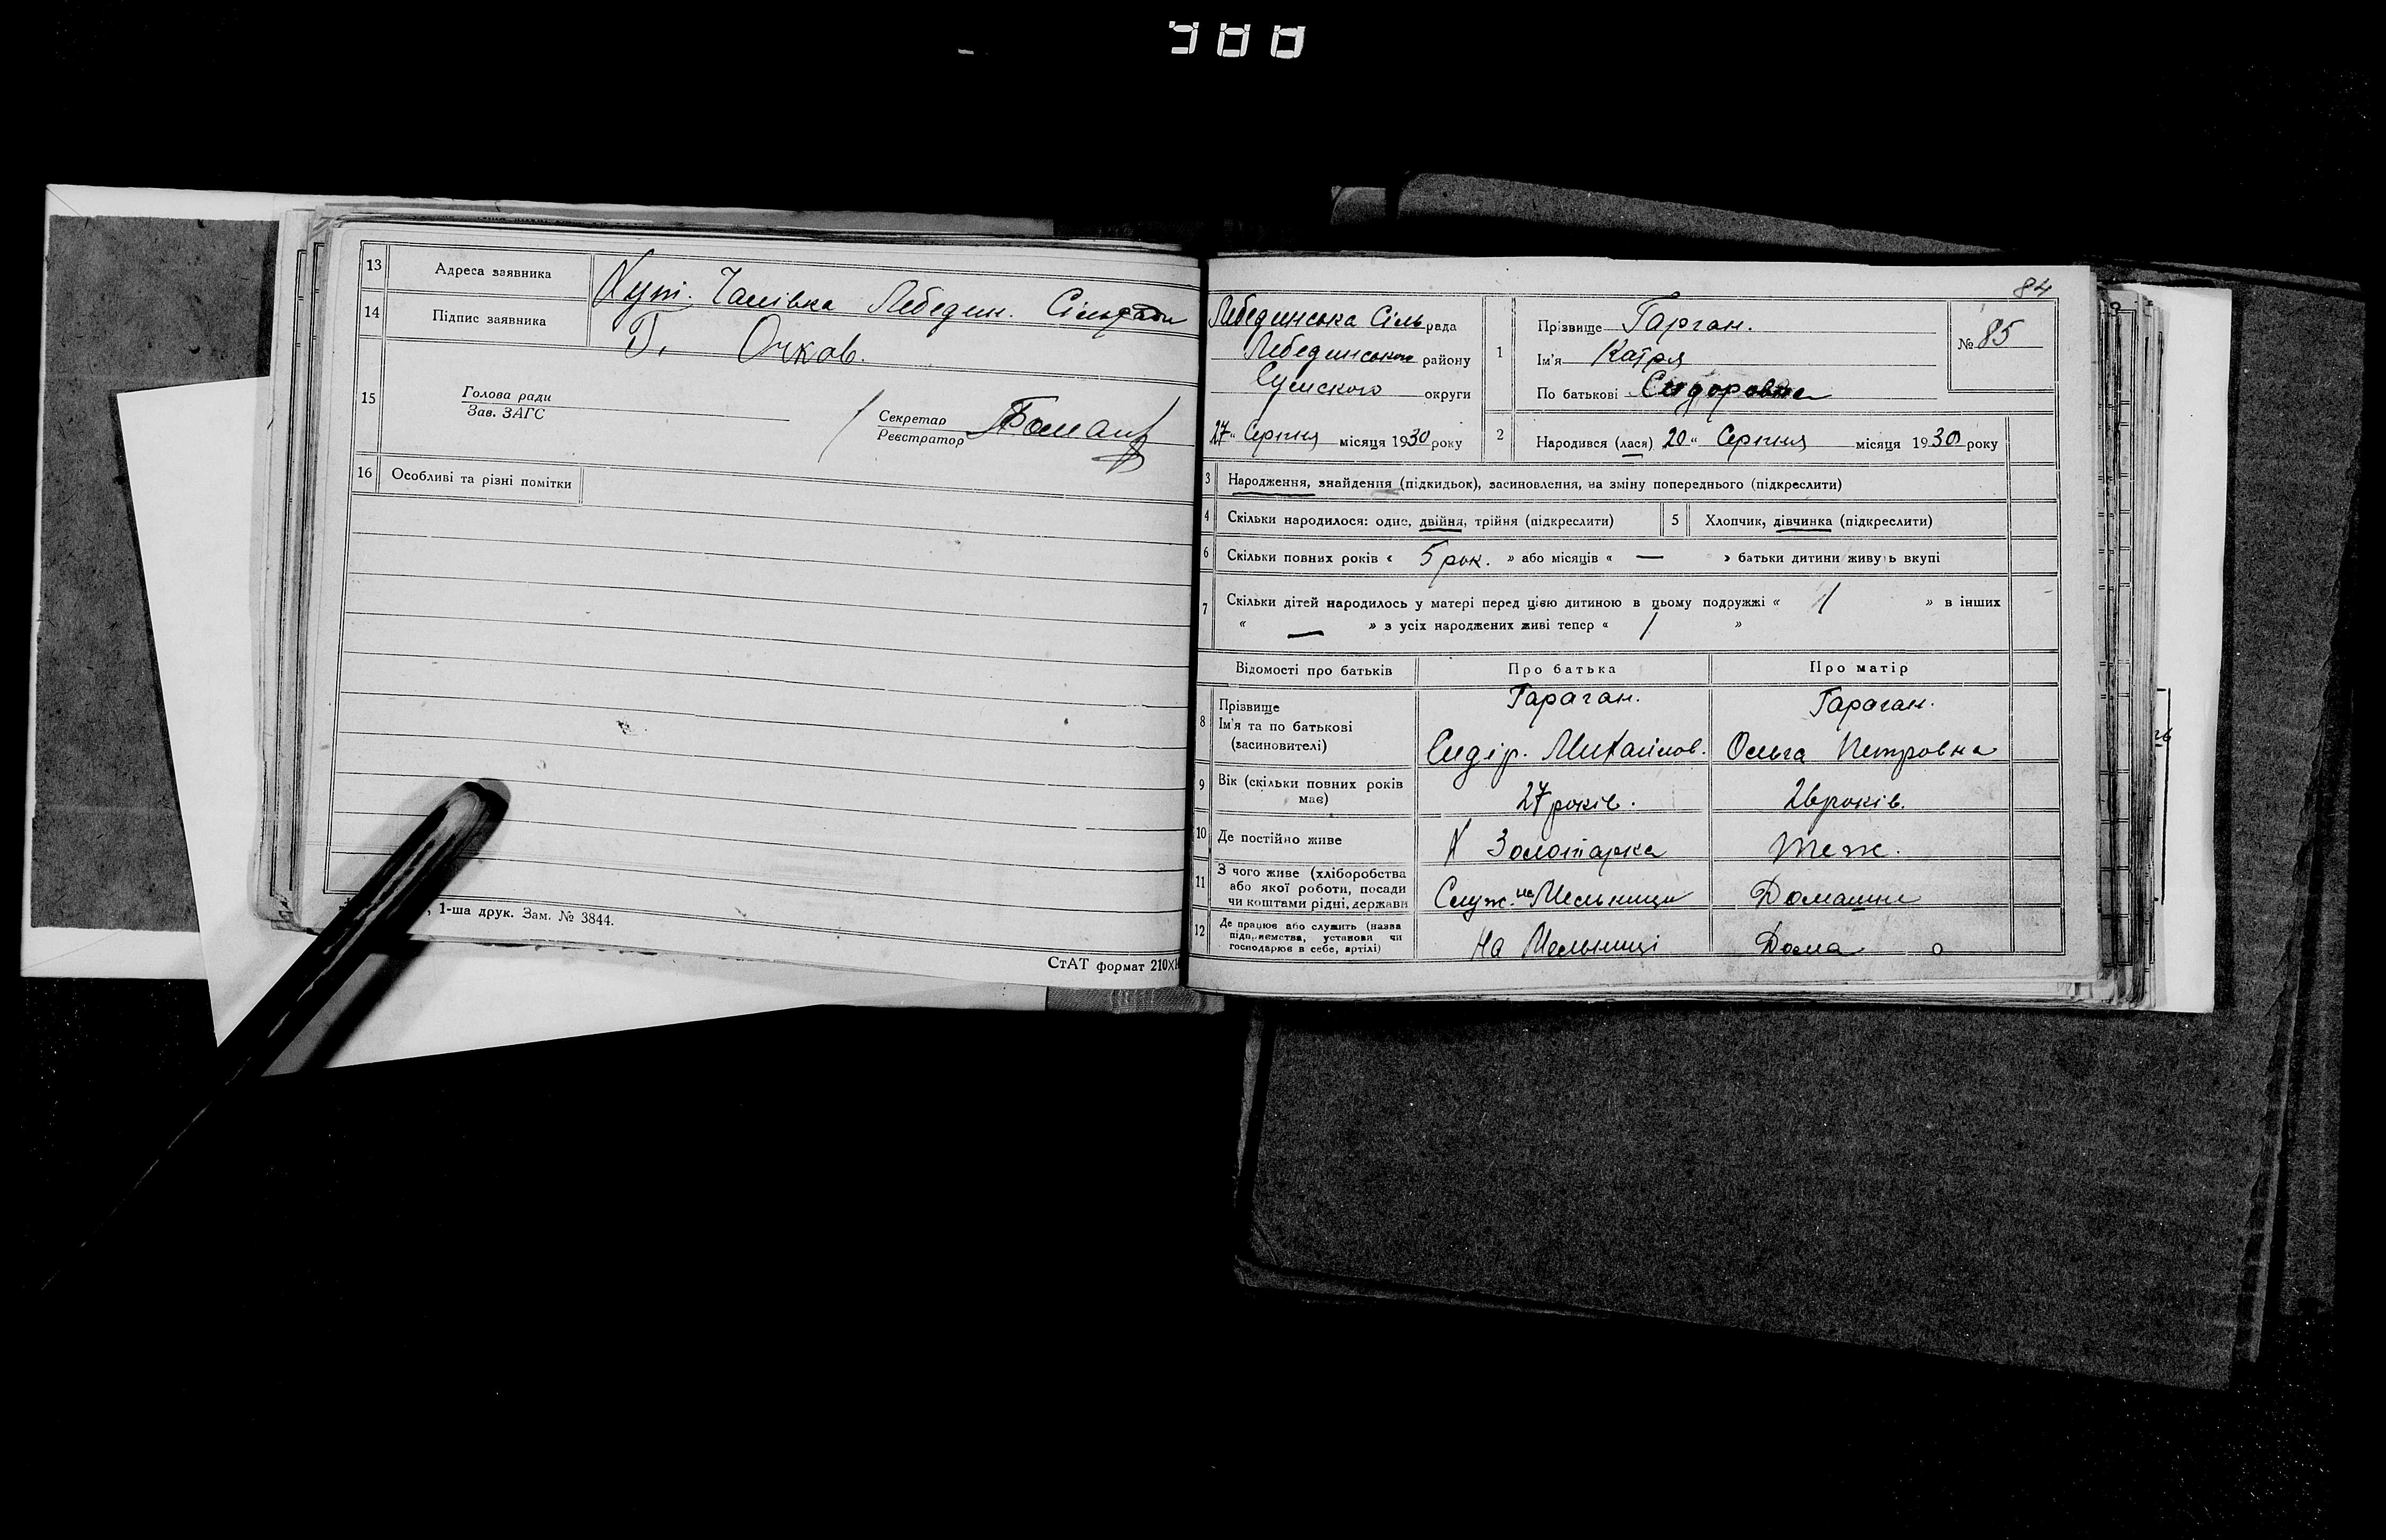 900
13 Адреса заявника Хут. Чалівка Лебедин. Сільради
14 Підпис заявника Г. Очков.
15 Голова ради
Зав. ЗАГС
Секретар
Реєстратор
16 Особливі та різні помітки
, 1-ша друк. Зам. № 3844.
СтАТ формат 210×
84
Лебединська Сільрада
Лебединського району
Сумского округи
27 " Серпня місяця 1930 року
1 Прізвище Гарган.
Ім'я Катря
По батькові Сидоровна
№ 85
2 Народився (лася) 20 " Серпня місяця 1930 року
3 Народження, знайдення (підкидьок), засиновлення, на зміну попереднього (підкреслити)
4 Скільки народилося: одне, двійня, трійня (підкреслити) 5 Хлопчик, дівчинка (підкреслити)
6 Скільки повних років « 5 рок. » або місяців « — » батьки дитини живуть вкупі
7 Скільки дітей народилось у матері перед цією дитиною в цьому подружжі « 1 » в інших
« — » з усіх народжених живі тепер « 1 »
Відомості про батьків Про батька Про матір
8 Прізвище Гараган. Гараган.
Ім'я та по батькові
(засиновителі) Сидір. Михайлов. Ольга Петровна
9 Вік (скільки повних років
має) 27 років. 26 років.
10 Де постійно живе Х Золотарка Теж.
11 З чого живе (хліборобства
або якої роботи, посади
чи коштами рідні, держави Служ. на Мельници Домашни
12 Де працює або служить (назва
підприємства, установи чи
господарює в себе, артілі) На Мельниці Дома